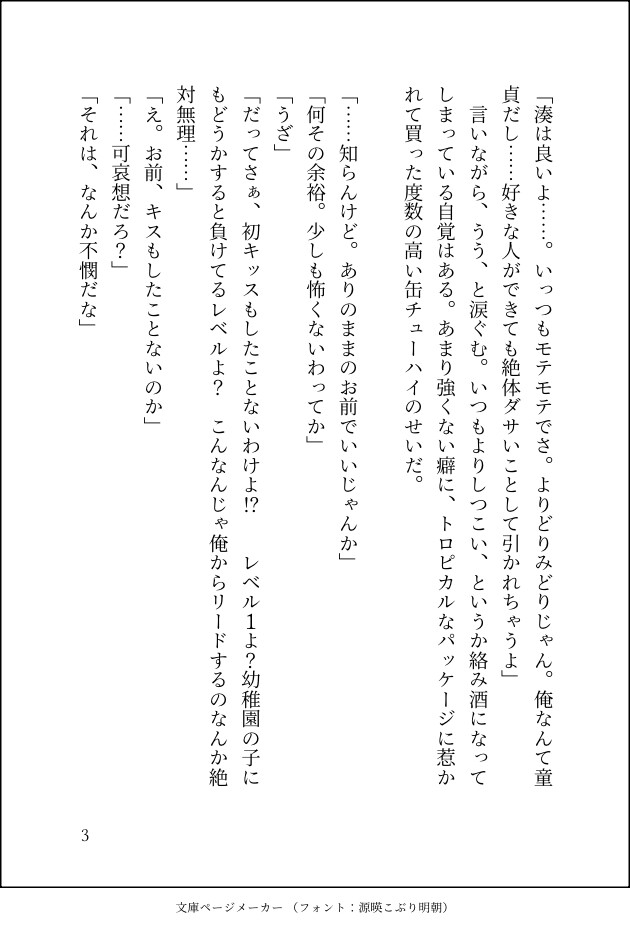 「湊は良いよ……。いっつもモテモテでさ。よりどりみどりじゃん。俺なんて童
貞だし……好きな人ができても絶体ダサいことして引かれちゃうよ」
　言いながら、うう、と涙ぐむ。いつもよりしつこい、というか絡み酒になって
しまっている自覚はある。あまり強くない癖に、トロピカルなパッケージに惹か
れて買った度数の高い缶チューハイのせいだ。
「……知らんけど。ありのままのお前でいいじゃんか」
「何その余裕。少しも怖くないわってか」
「うざ」
「だってさぁ、初キッスもしたことないわけよ!?　レベル１よ？幼稚園の子に
もどうかすると負けてるレベルよ？　こんなんじゃ俺からリードするのなんか絶
対無理……」
「え。お前、キスもしたことないのか」
「……可哀想だろ？」
「それは、なんか不憫だな」
3
文庫ページメーカー（フォント：源暎こぶり明朝）